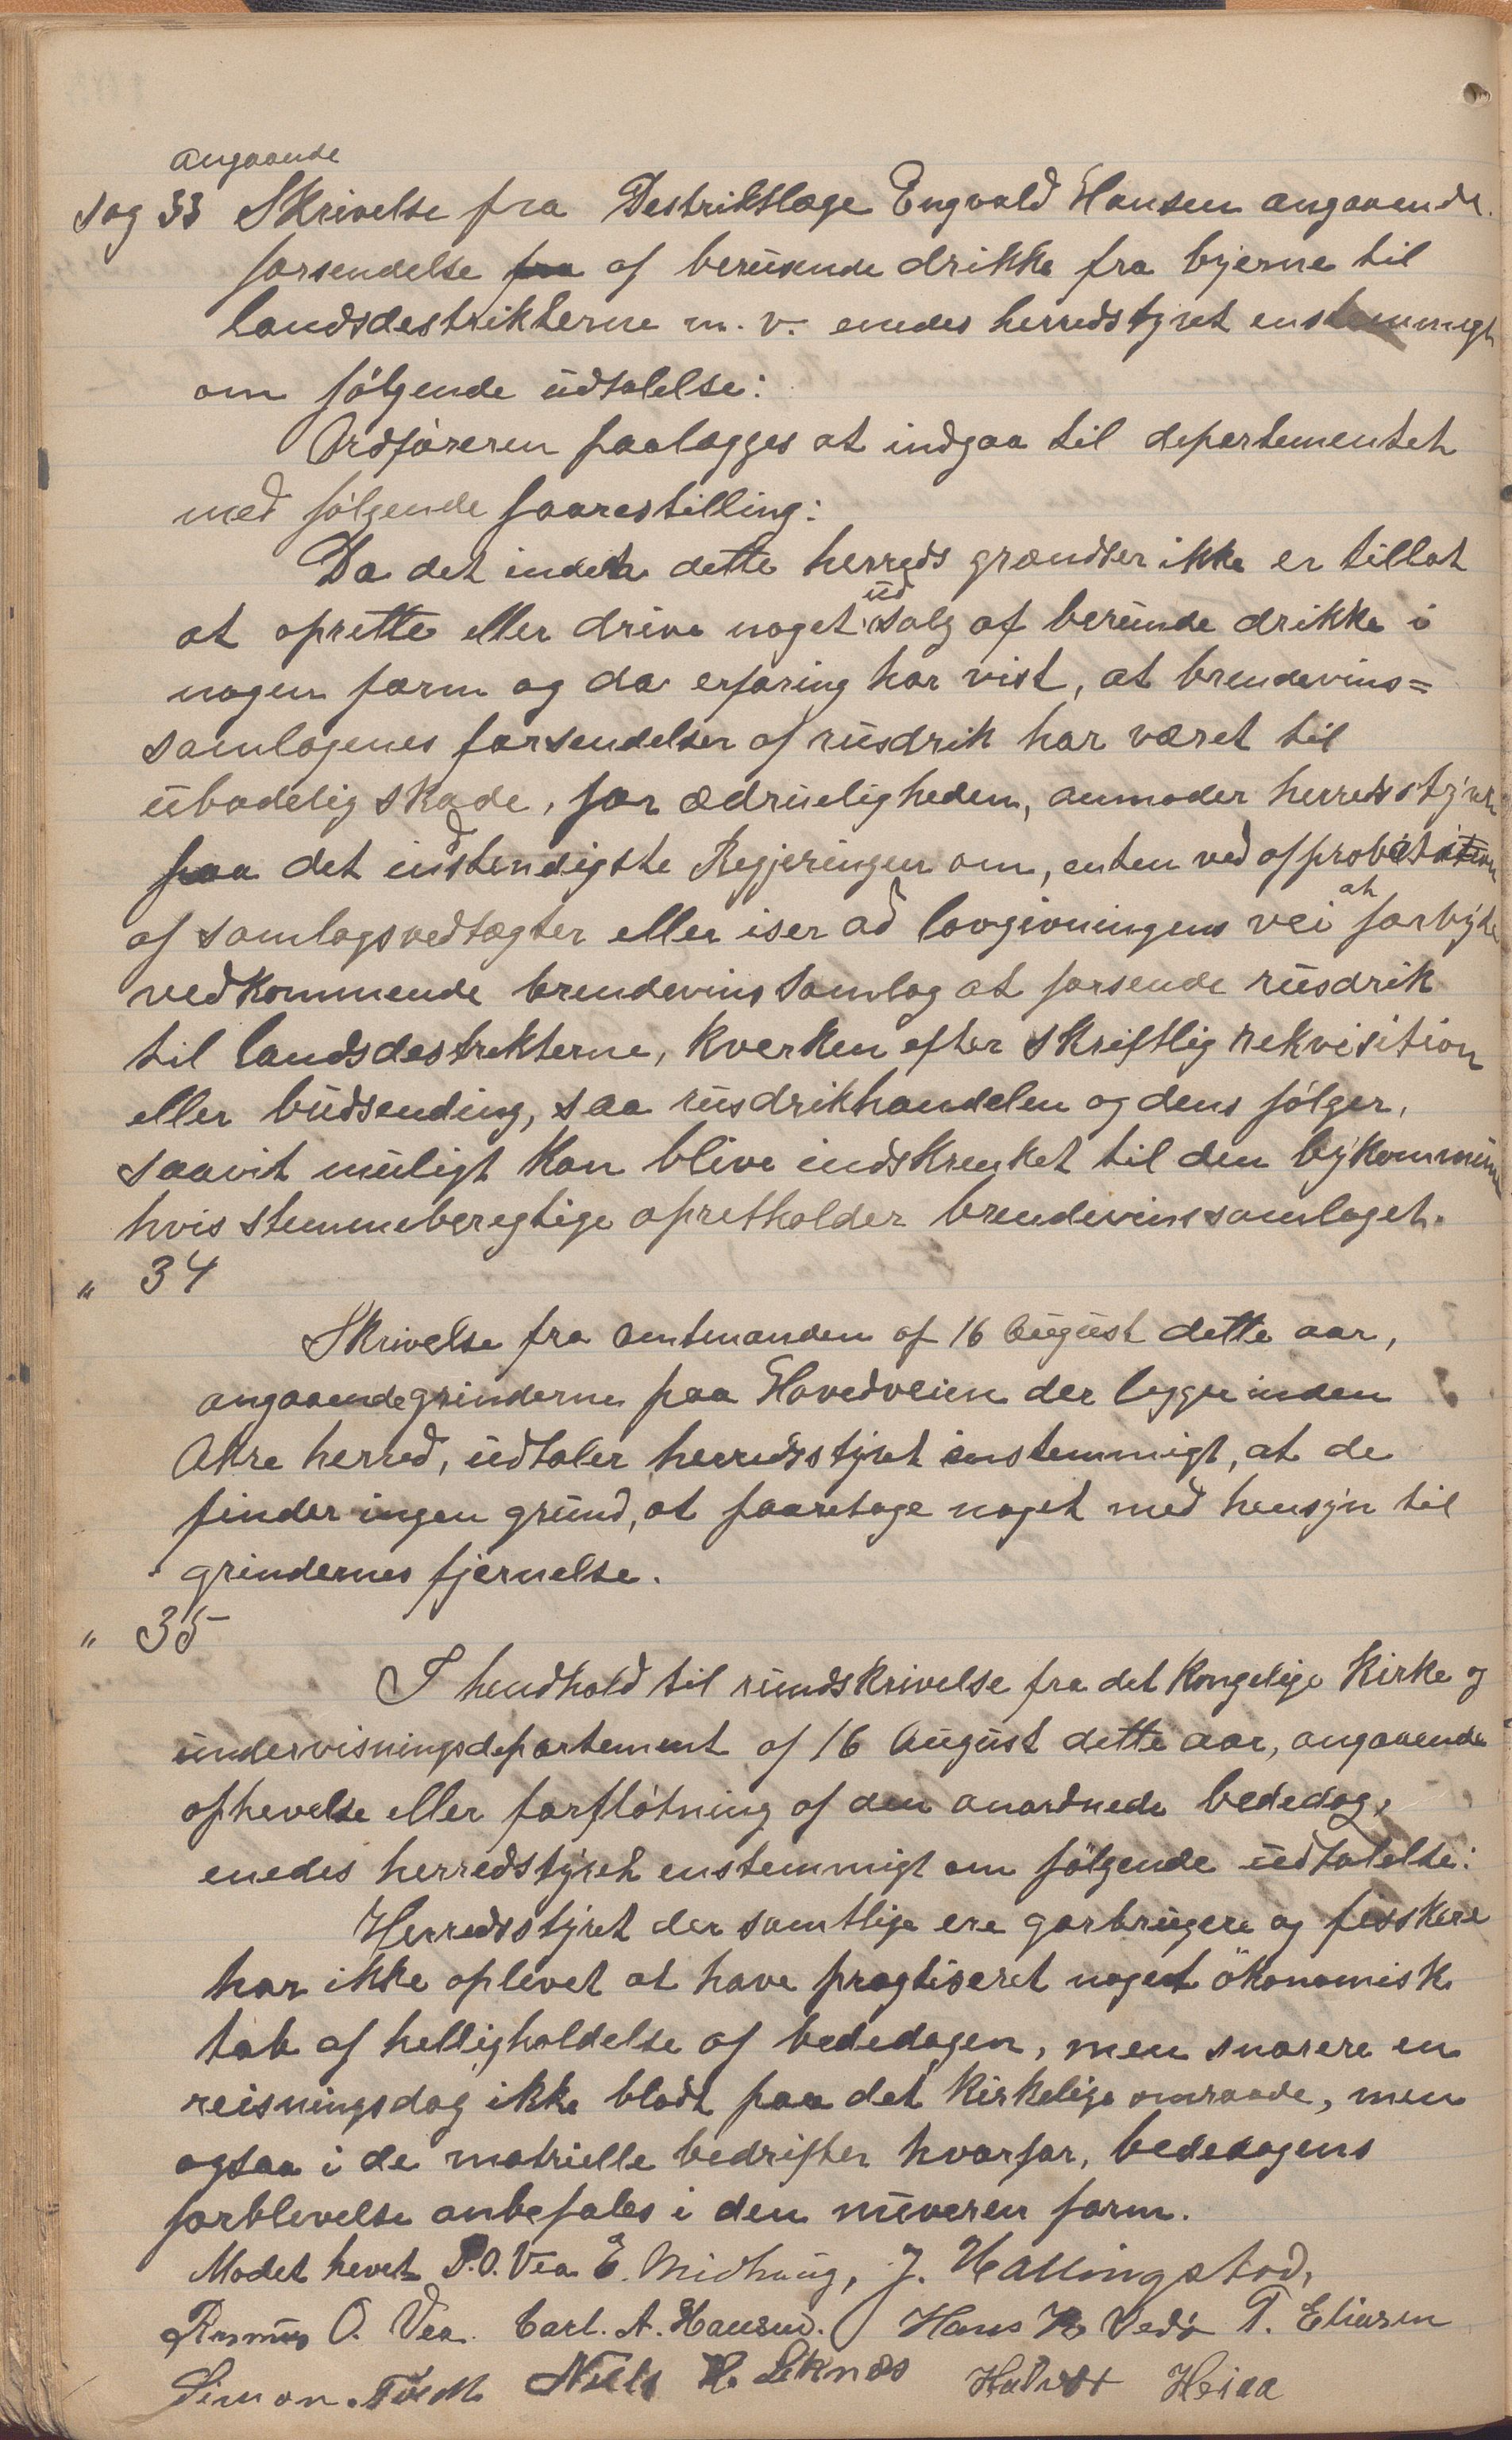 angaaende
Sag 33 Skrivelse fra Destriktslæge Engvald Hansen angaaende
forsendelse fra af berusende drikke fra byerne til
landsdestrikterne m. v. enedes herredstyret enstemmigt
om følgende udtalelse:
Ordføreren paalægges at indgaa til departementet
med følgende faarestilling:
Da det inden dette herreds grændser ikke er tillat
ud
at oprette eller drive noget salg af berunde drikke i
nogen form og da erfaring har vist, at brendevins=
samlagenes forsendelser af rusdrik har været til
ubodelig skade, for ædrueligheden, anmoder herredsstyret
paa det indstendigste Regjeringen om, enten ved approbation
at
af samlagsvedtægter eller iser ad lovgivningens vei forbyde
vedkommende brendevinssamlag at forsende rusdrik
til landsdestrekterne, kverken efter skriftlig rekvisition
eller budsending, saa rusdrikhandelen og dens følger,
saavit muligt kan blive indskrenket til den bykommune
hvis stemmeberegtige opretholder brendevinssamlaget.
" 34
Skrivelse fra amtmanden af 16 August dette aar,
angaaende grinderne paa Hovedveien der ligger inden
Akre herred, udtaler herredsstyret enstemmigt, at de
finder ingen grund, at faaretage noget med hensyn til
grindernes fjernelse.
" 35
I hendhold til rundskrivelse fra det kongelige Kirke og
undervisningsdepartement af 16 August dette aar, angaaende
ophevelse eller forfløtning af den anordnede bededag,
enedes herredstyret enstemmigt om følgende udtalelse:
Herredsstyret der samtlige ere garbrugere og fisskere
har ikke oplevet at have pragtiseret noget økonomisk
tab af helligholdelse af bededagen, men snarere en
reisningsdag ikke blodt paa det kirkelige omraade, men
ogsaa i de matrielle bedrifter hvorfor, bededagens
forblevelse anbefales i den nuveren form.
Mødet hevet P.O. Vea E. Midhaug, J. Hallingstad,
Rasmus O. Vea. Carl. A. Hansen. Hans H Vedø T. Eliasen
Simon Niels H. Liknes Halvor Heiaa